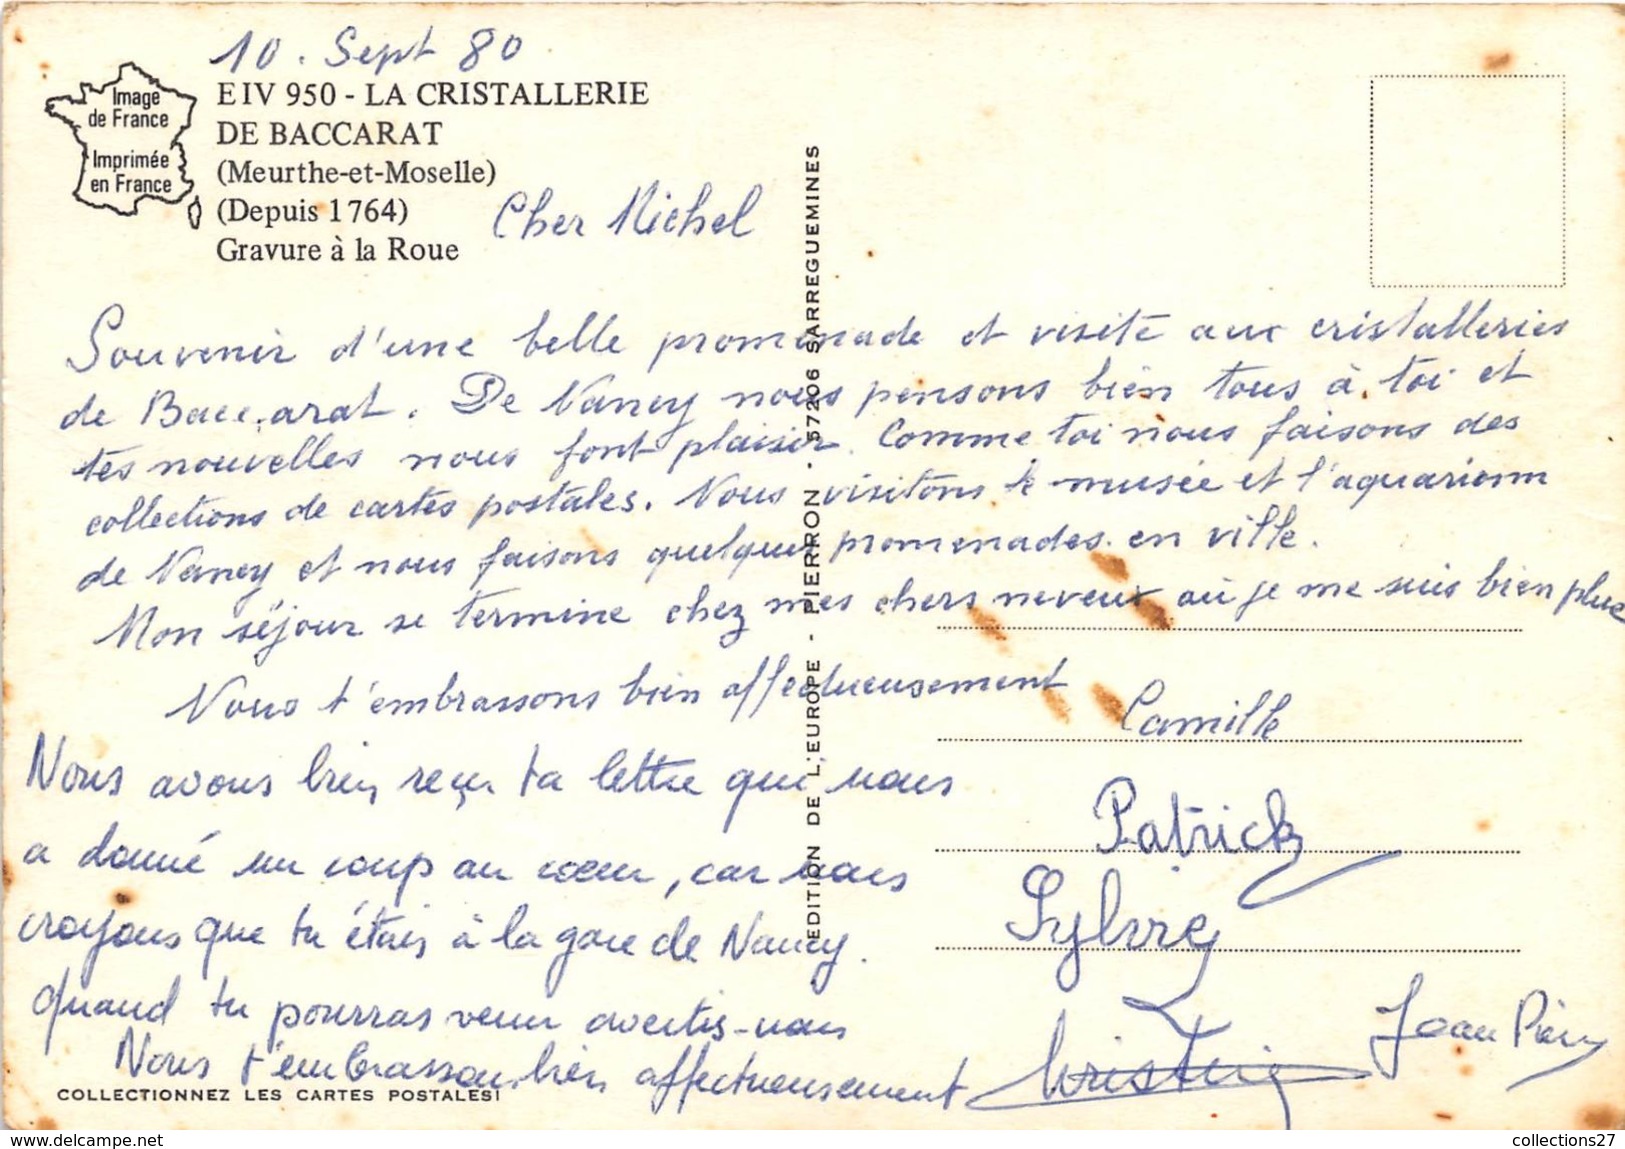 10. Sept 80
Image
de France
Imprimée
en France
EIV 950 - LA CRISTALLERIE
DE BACCARAT
(Meurthe-et-Moselle)
(Depuis 1764)
Gravure à la Roue
Cher Michel
Souvenir d'une belle promenade et visite aux cristalleries
de Baccarat. De Nancy nous pensons bien tous à toi et
tes nouvelles nous font plaisir. Comme toi nous faisons des
collections de cartes postales. Nous visitons le musée et l'aquarium
de Nancy et nous faisons quelques promenades en ville.
Mon séjour se termine chez mes chers neveux où je me suis bien plue
Nous t'embrassons bien affectueusement
Camille
Nous avons bien reçu ta lettre qui nous
a donné un coup au coeur, car nous
croyons que tu étais à la gare de Nancy.
quand tu pourras venir avertis-nous
Nous t'embrassons bien affectueusement
Patrick
Sylvie
Christine
Jean Pierre
EDITION DE L'EUROPE - PIERRON - 57206 SARREGUEMINES
COLLECTIONNEZ LES CARTES POSTALES!
collections27